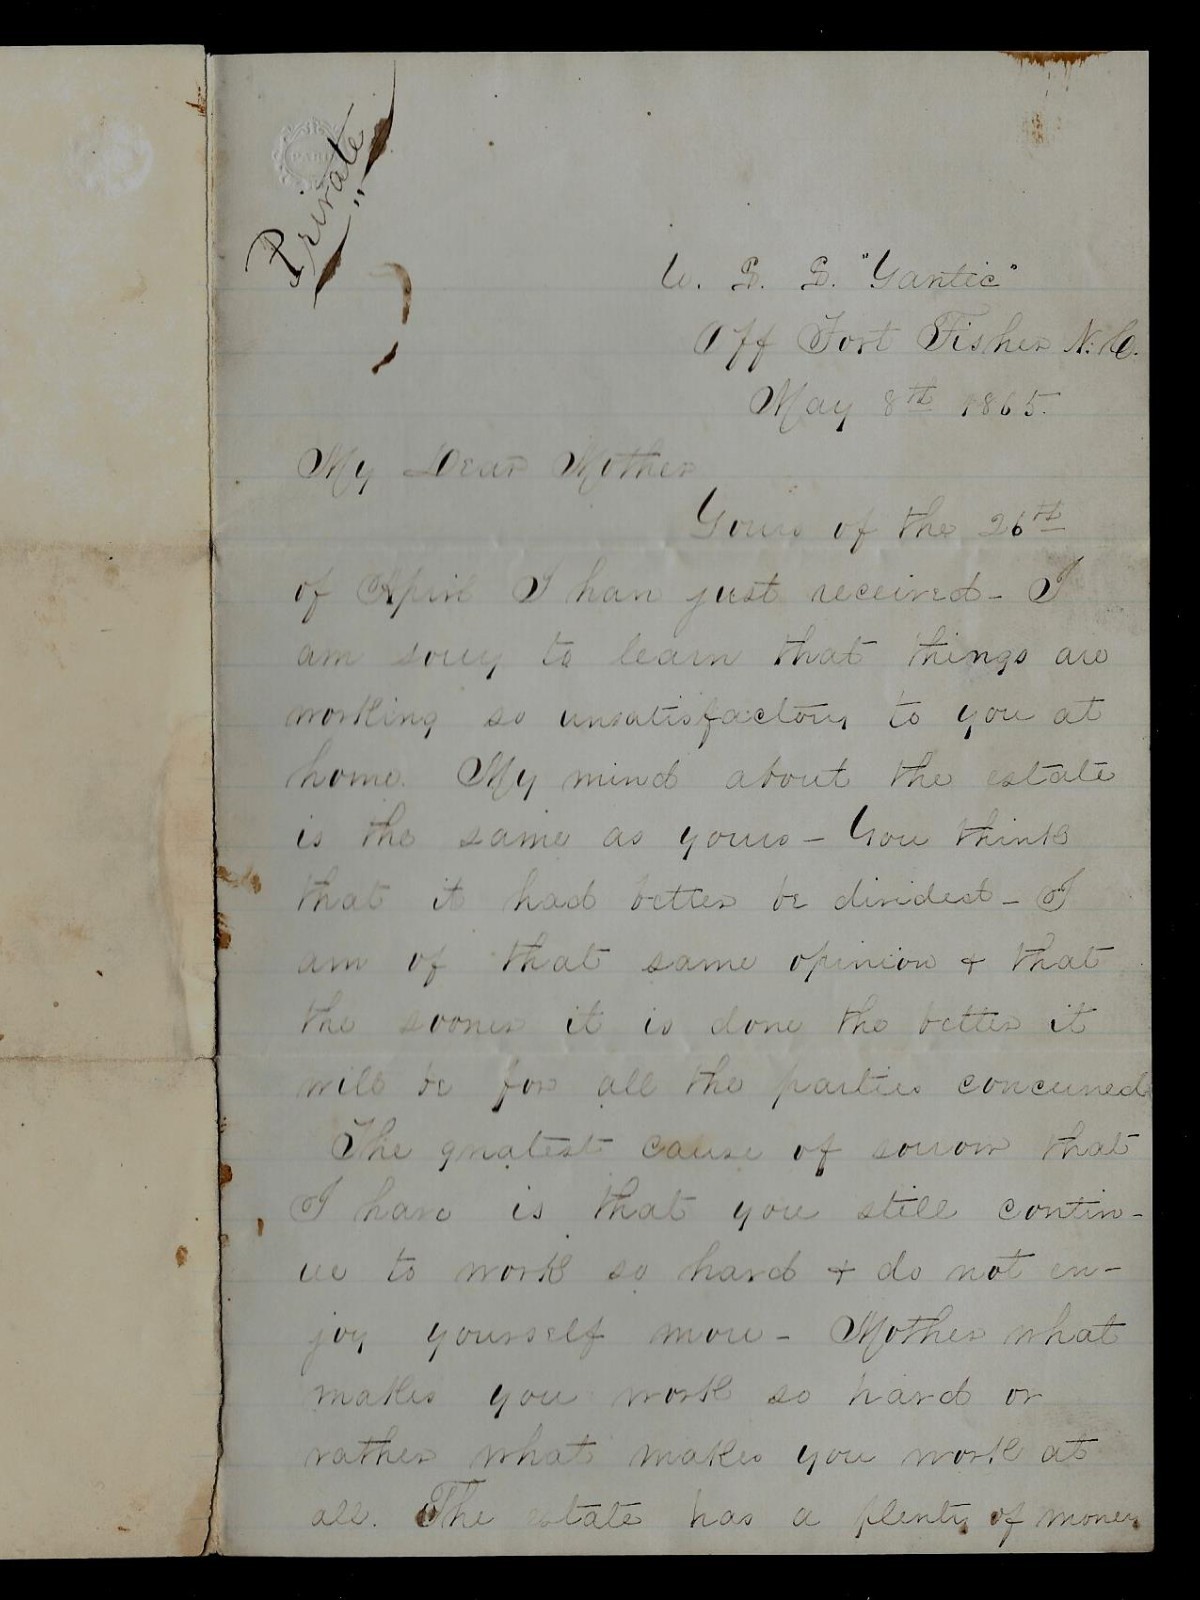 Private
U. S. S. "Yantic"
Off Fort Fisher N. C.
May 8th 1865.
My Dear Mother
Yours of the 26th
of April I have just received - I
am sorry to learn that things are
working so unsatisfactory to you at
home. My mind about the estate
is the same as yours - You think
that it had better be divided - I
am of that same opinion & that
the sooner it is done the better it
will be for all the parties concerned
The greatest cause of sorrow that
I have is that you still contin-
ue to work so hard & do not en-
joy yourself more - Mother what
makes you work so hard or
rather what makes you work at
all. The estate has a plenty of money